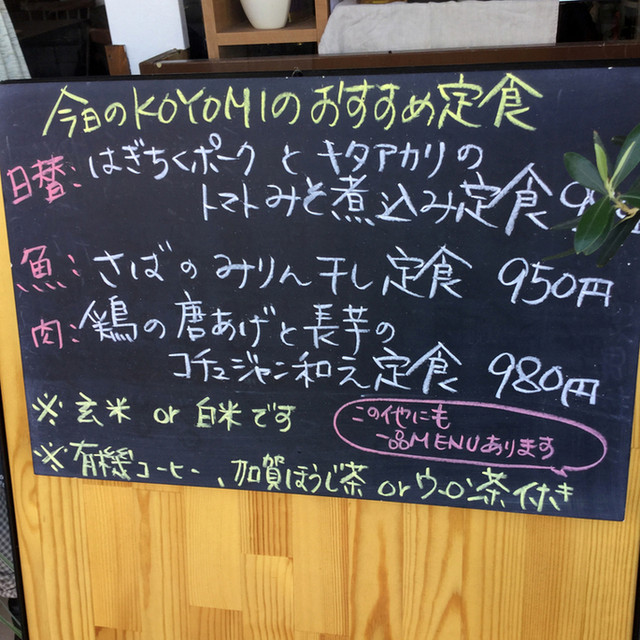 今日のKOYOMIのおすすめ定食
日替:はぎちくポークとキタアカリの
トマトみそ煮込み定食
魚:さばのみりん干し定食 950円
肉:鶏の唐あげと長芋の
コチュジャン和え定食 980円
※玄米 or 白米です
この他にも
一品MENUあります
※有機コーヒー、加賀ほうじ茶 or ウーロン茶付き